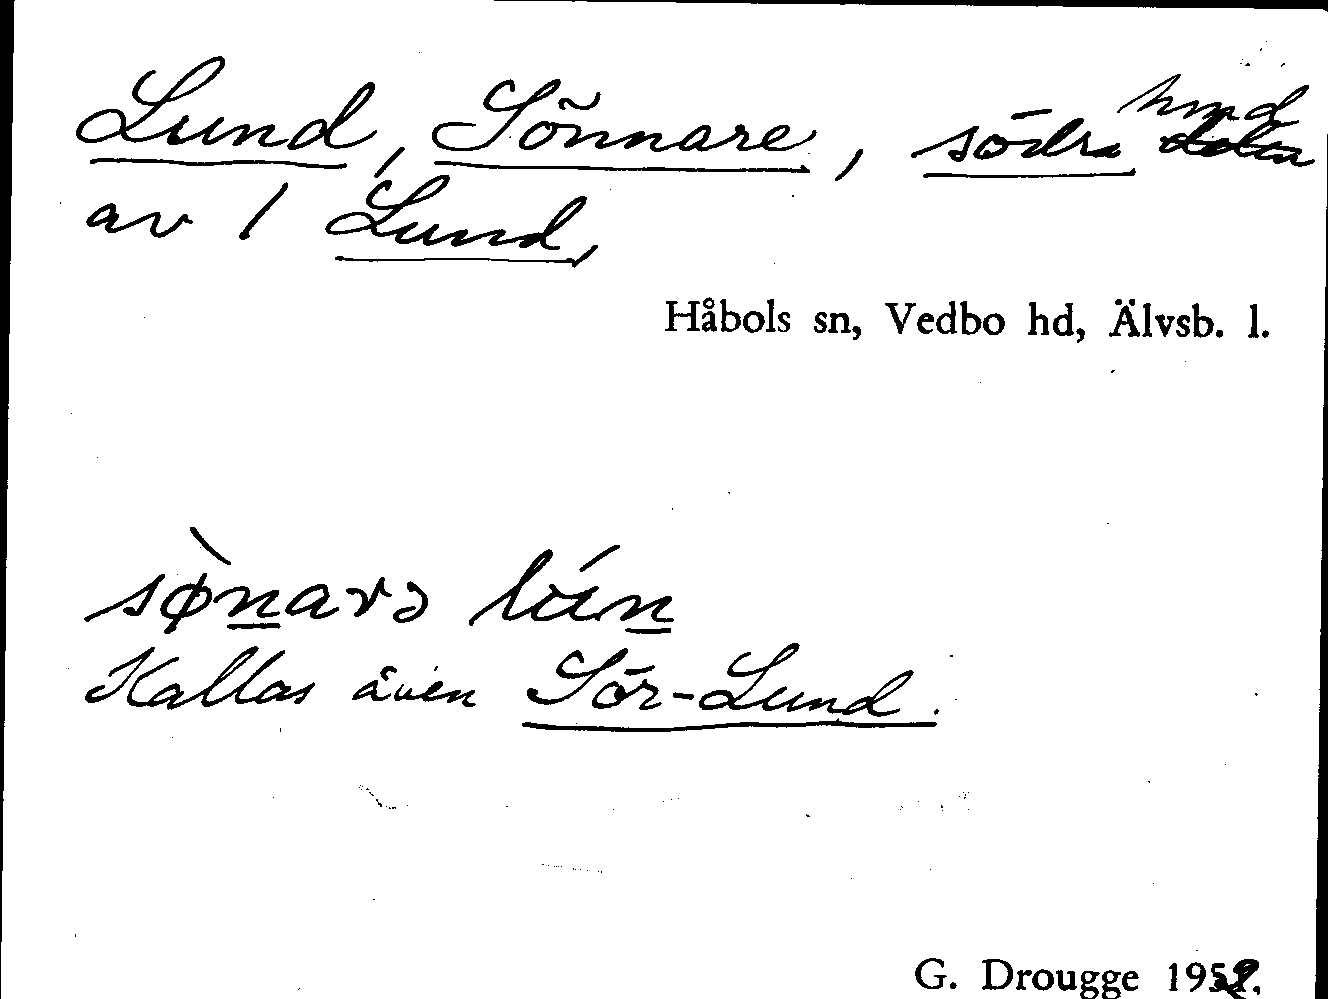 Lund, Sönnare, södra hmd
av 1 Lund,
Håbols sn, Vedbo hd, Älvsb. l.
sø̀narə lún
Kallas även Sör-Lund.
G. Drougge 195